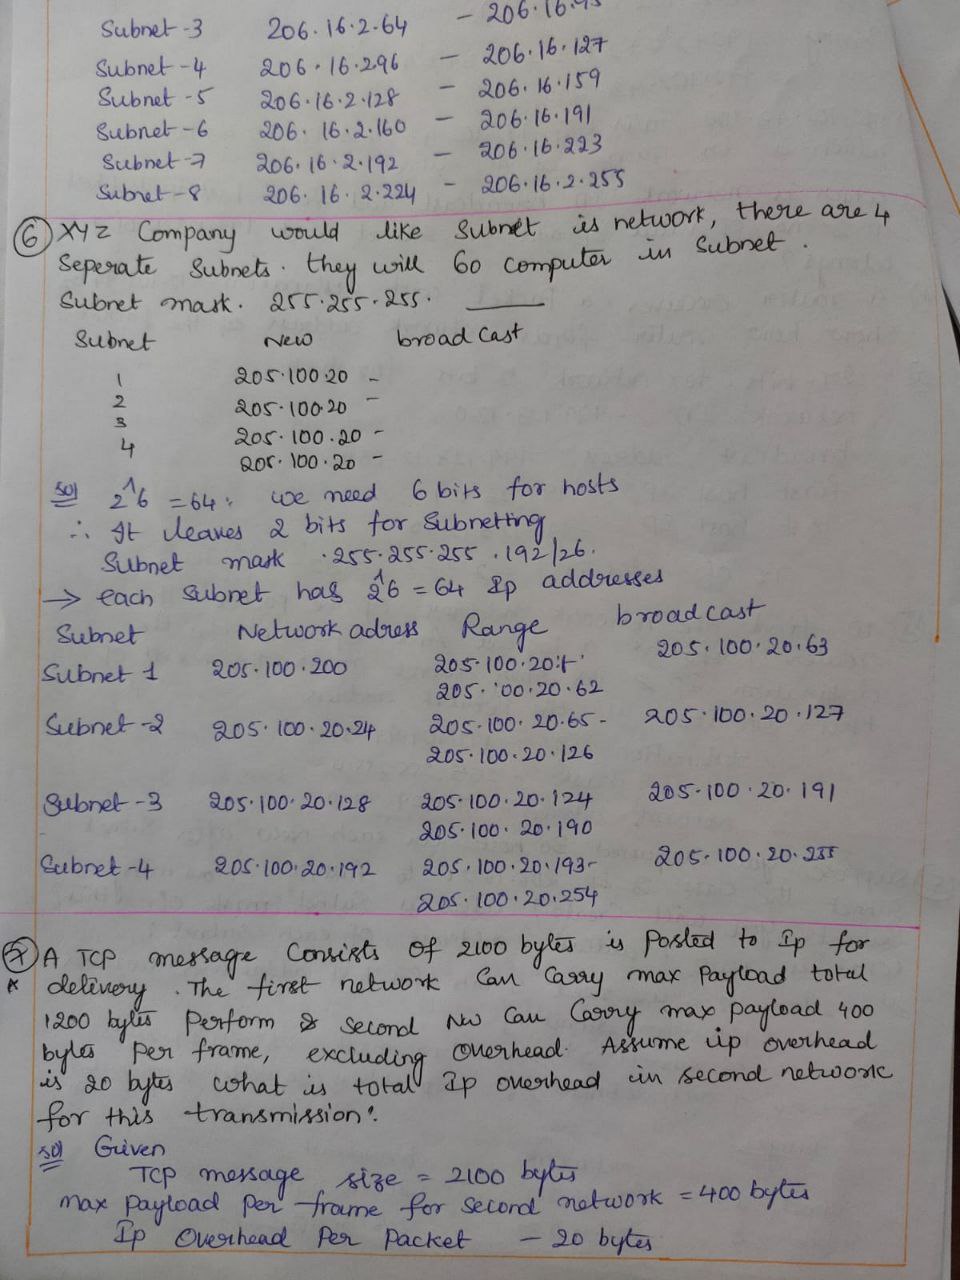 Subnet-3 206.16.2.64 - 206.16.95
Subnet-4 206.16.296 - 206.16.127
Subnet-5 206.16.2.128 - 206.16.159
Subnet-6 206.16.2.160 - 206.16.191
Subnet-7 206.16.2.192 - 206.16.223
Subnet-8 206.16.2.224 - 206.16.2.255
6 XYZ Company would like Subnet is network, there are 4
Seperate Subnets. they will 60 computer in Subnet.
Subnet mask. 255.255.255. ____
Subnet New broad cast
1 205.100.20 -
2 205.100.20 -
3 205.100.20 -
4 205.100.20 -
sol 2^6 = 64, we need 6 bits for hosts
∴ It leaves 2 bits for Subnetting
Subnet mask .255.255.255.192/26.
→ each Subnet has 2^6 = 64 Ip addresses
Subnet Network adress Range broad cast
Subnet 1 205.100.200 205.100.20.1 205.100.20.63
205.100.20.62
Subnet-2 205.100.20.24 205.100.20.65- 205.100.20.127
205.100.20.126
Subnet-3 205.100.20.128 205.100.20.124 205.100.20.191
205.100.20.190
Subnet-4 205.100.20.192 205.100.20.193- 205.100.20.255
205.100.20.254
7 A TCP message Consists of 2100 bytes is Posted to Ip for
* delivery. The first network Can Carry max Payload total
1200 bytes Perform & second Nw Can Carry max payload 400
bytes Per frame, excluding overhead. Assume ip overhead
is 20 bytes what is total Ip overhead in second network
for this transmission?
sol Given
TCP message size = 2100 bytes
max payload per frame for second network = 400 bytes
Ip Overhead Per Packet - 20 bytes